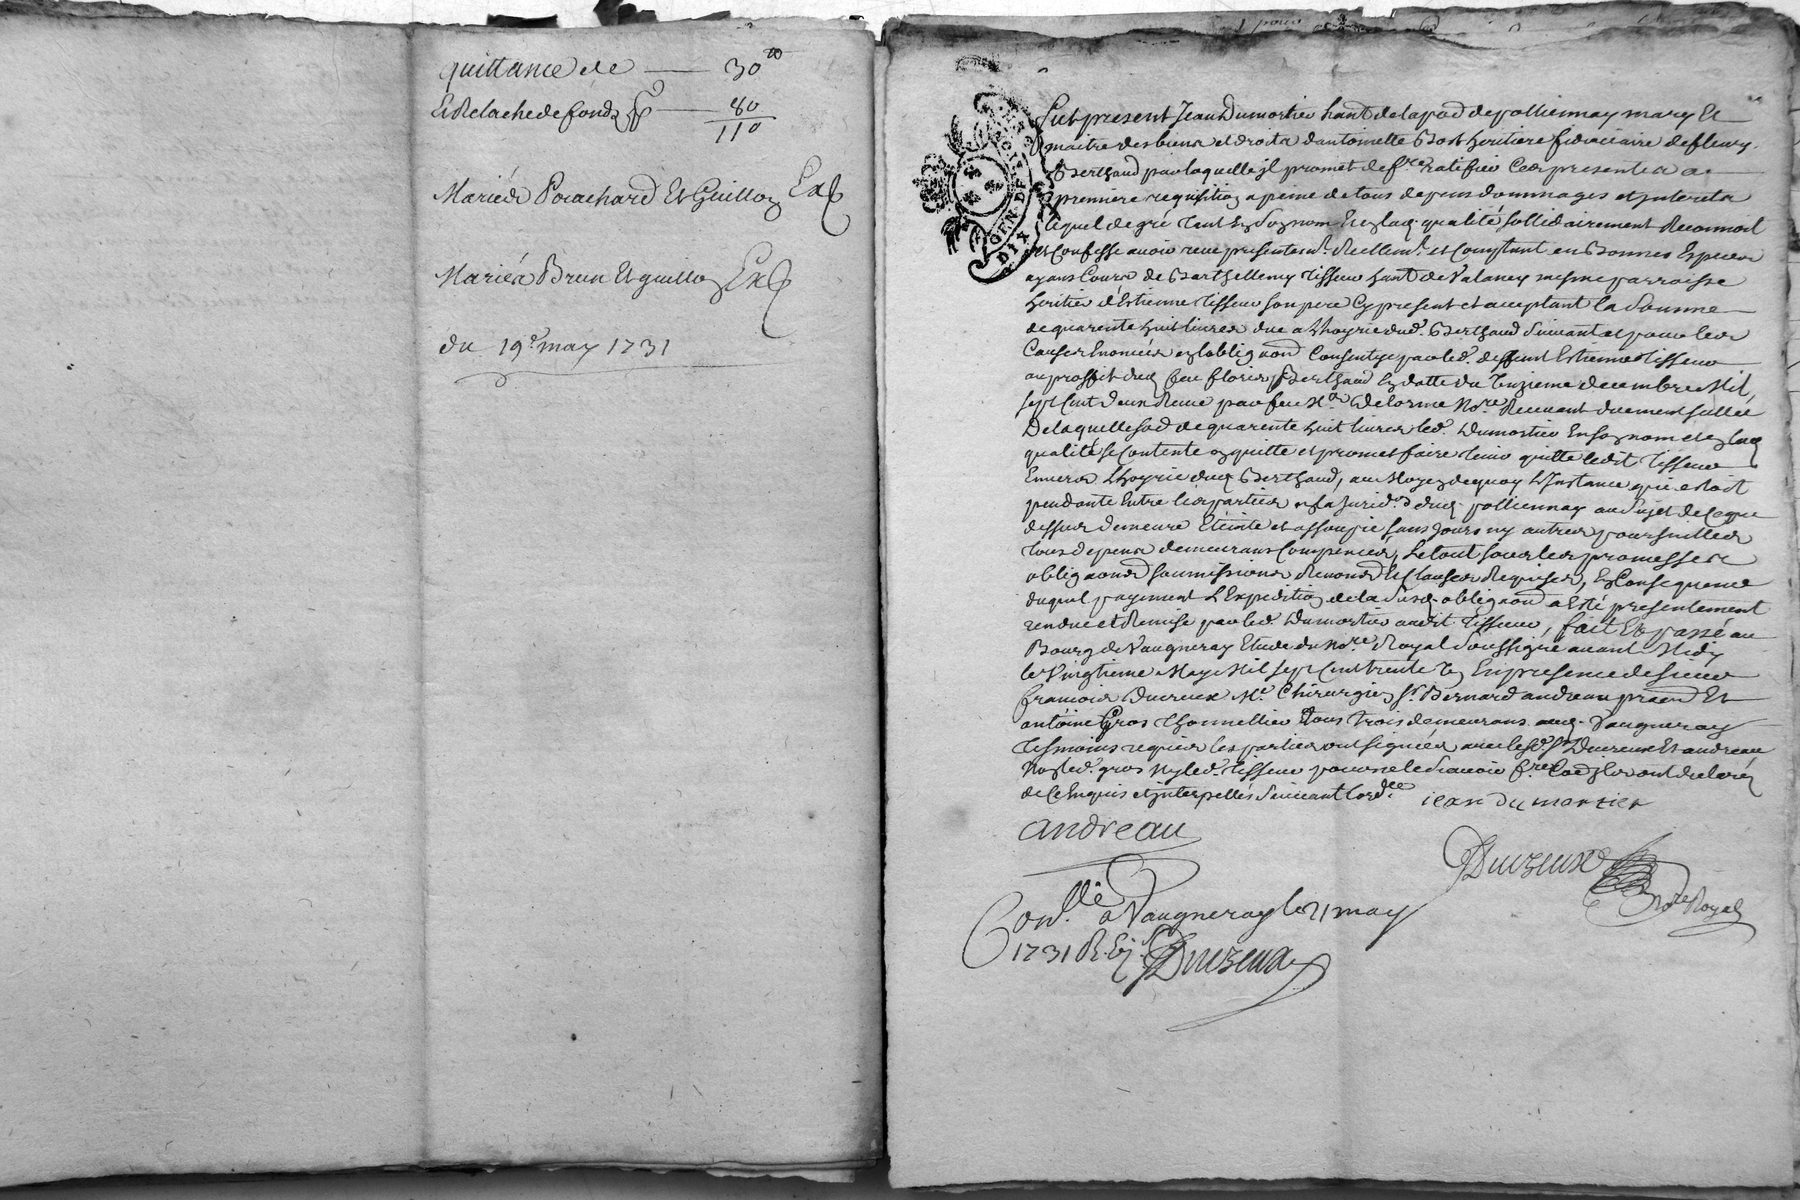 quittance de — 30ᵗᵗ
Et Relache de fond pr — 80
110
Mariés Pouachard Et Guillon Exp
Mariés Brun Et guillon Exp
du 19e may 1731
GEN DE LYON
DIX
Fut present Jean Dumortier hant de la par de pollionnay mary Et
maitre des biens et droits d'antoinette Bost heritiere fidiciaire de fleury
Berthaud par laquelle il promet de fre ratifier Ces presentes a
premiere requisition a peine de tous depens dommages et interets
lequel de gré tant En son nom Et En lad qualité sollidairement Reconnoit
et Confesse avoir receu presentemt Reellemt et Comptant en Bonnes Especes
ayans Cours de Barthellemy Tisseur hant de Valancy mesme parroisse
heritier d'Estienne Tisseur son pere Cy present et acceptant la Somme
de quarente huit livres due a L'hoyrie dud. Berthaud Suivant et pour les
Causes Enoncées en l'obligaon Consentye par led. deffunt Estienne Tisseur
au proffit dud feu Berthaud En datte du unzieme decembre Mil
sept Cent deux Receue par feu Me Delorme Nore Reccuant duement sellée
De laquelle so de quarente huit livres led. Dumortier En son nom et en lad
qualité se Contente en quitte et promet faire tenir quitte ledit Tisseur
Envers L'hoyrie dud Berthaud, au Moyen dequoy L'Instance qui estoit
pendante Entre les parties en la Juridon dud. pollionnay au Sujet de Ce que
dessus demeure Eteinte et assoupie sans Jours ny autres poursuittes
tous depens demeurans Compencés, Le tout sous les promesses
obligaons soumissions Renonons Et Clauses Requises, En Consequence
duquel payement L'Expedition de la Susd obligaon a Esté presentement
rendue et Remise par led. Dumortier audit Tisseur, fait Et passé au
Bourg de Vaugneray Etude du Nore Royal Soussigné avant Midy
le Vingtieme May Mil sept Cent trente un En presence de sieur
francois Ducreux Me Chirurgien Sr Bernard andreau pratn Et
antoine Gros thonnellier tous trois demeurans aud. Vaugneray
tesmoins requis les parties ont signées avec lesd. Srs Ducreux Et andreau
Non led. gros Ny led. Tisseur pour ne le Scavoir fre ont declaré
de Ce Enquis et interpellés Suivant l'ordce jean du mortier
andreau
Ducreux
Nore Royal
Conllé a Vaugneray le 21 may
1731 R. Ducreux